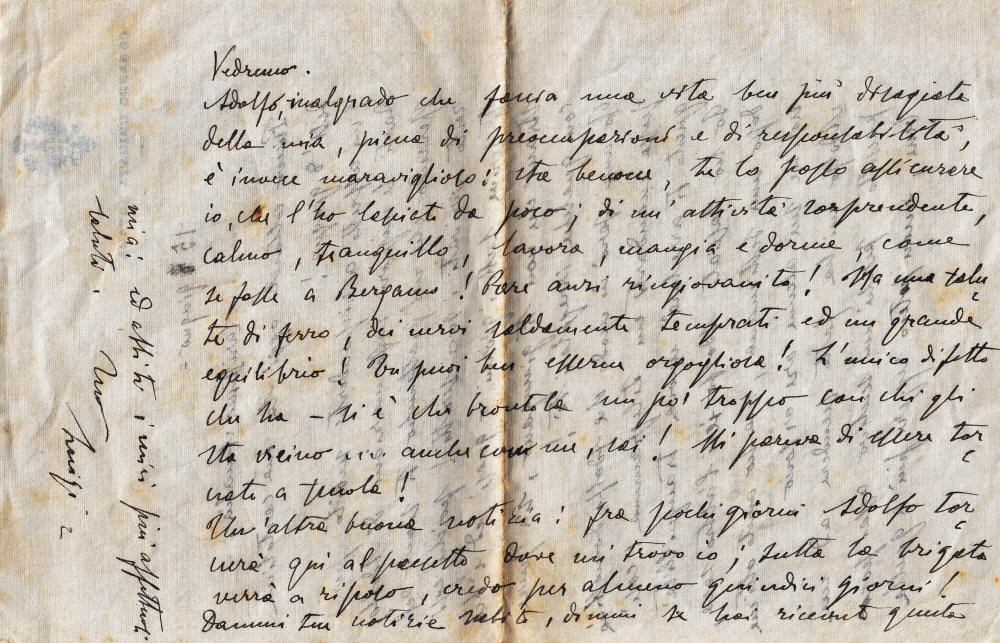 Vedremo.
Adolfo, malgrado che faccia una vita ben più disagiata
della mia, piena di preoccupazioni e di responsabilità,
è invece maraviglioso! Sta benone, te lo posso assicurare
io, che l'ho lasciato da poco; di un'attività sorprendente,
calmo, tranquillo, lavora, mangia e dorme, come
se fosse a Bergamo! Pare anzi ringiovanito! Ha una salu
te di ferro, dei nervi saldamente temprati ed un grande
equilibrio! Tu puoi ben esserne orgogliosa! L'unico difetto
che ha – si è che brontola un po' troppo con chi gli
sta vicino ... anche con me, sai! Mi pareva di essere tor
nato a scuola!
Un'altra buona notizia: fra pochi giorni Adolfo tor
nerà qui al paesetto dove mi trovo io; tutta la brigata
verrà a riposo, credo per almeno quindici giorni!
Dammi tue notizie subito, dimmi se hai ricevuto questa
mia! ed abbiti i miei più affettuosi
saluti.
Tuo
Luigi